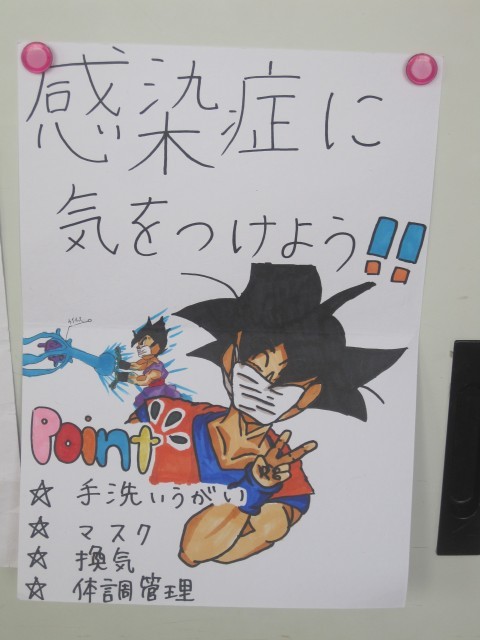 感染症に
気をつけよう!!
Point
☆ 手洗いうがい
☆ マスク
☆ 換気
☆ 体調管理